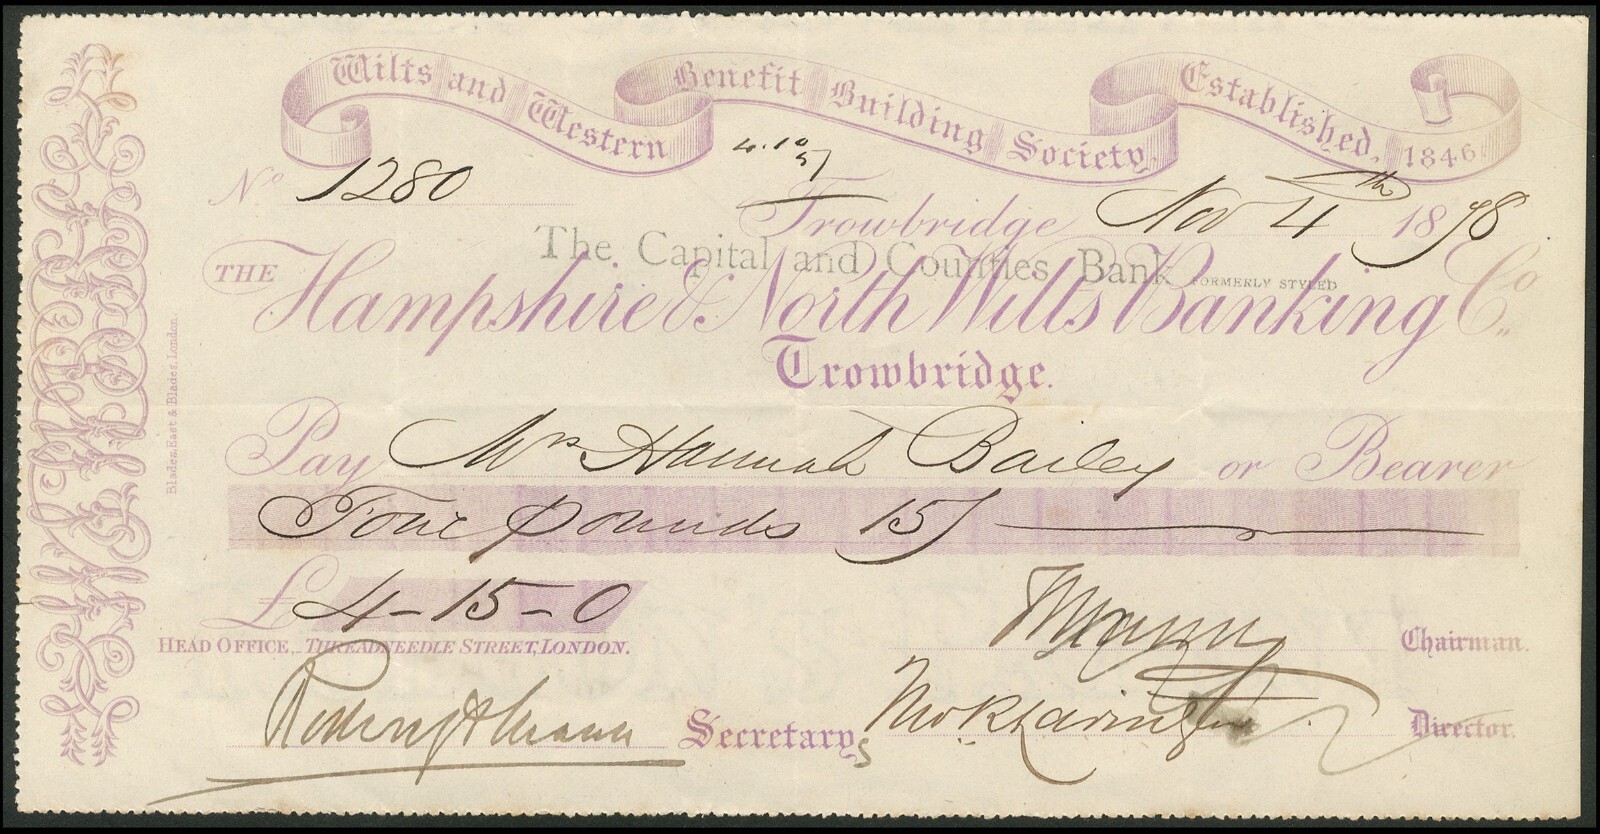 Wilts and Western Benefit Building Society, Established, 1846.
4.10
5/
No 1280
Trowbridge Nov 4th 1878
The Capital and Counties Bank FORMERLY STYLED
THE Hampshire & North Wilts Banking Co.
Trowbridge.
Pay Mrs Hannah Bailey or Bearer
Four pounds 15/
£4-15-0
HEAD OFFICE, THREADNEEDLE STREET, LONDON.
Chairman.
Secretary
Director.
Blades, East & Blades, London.